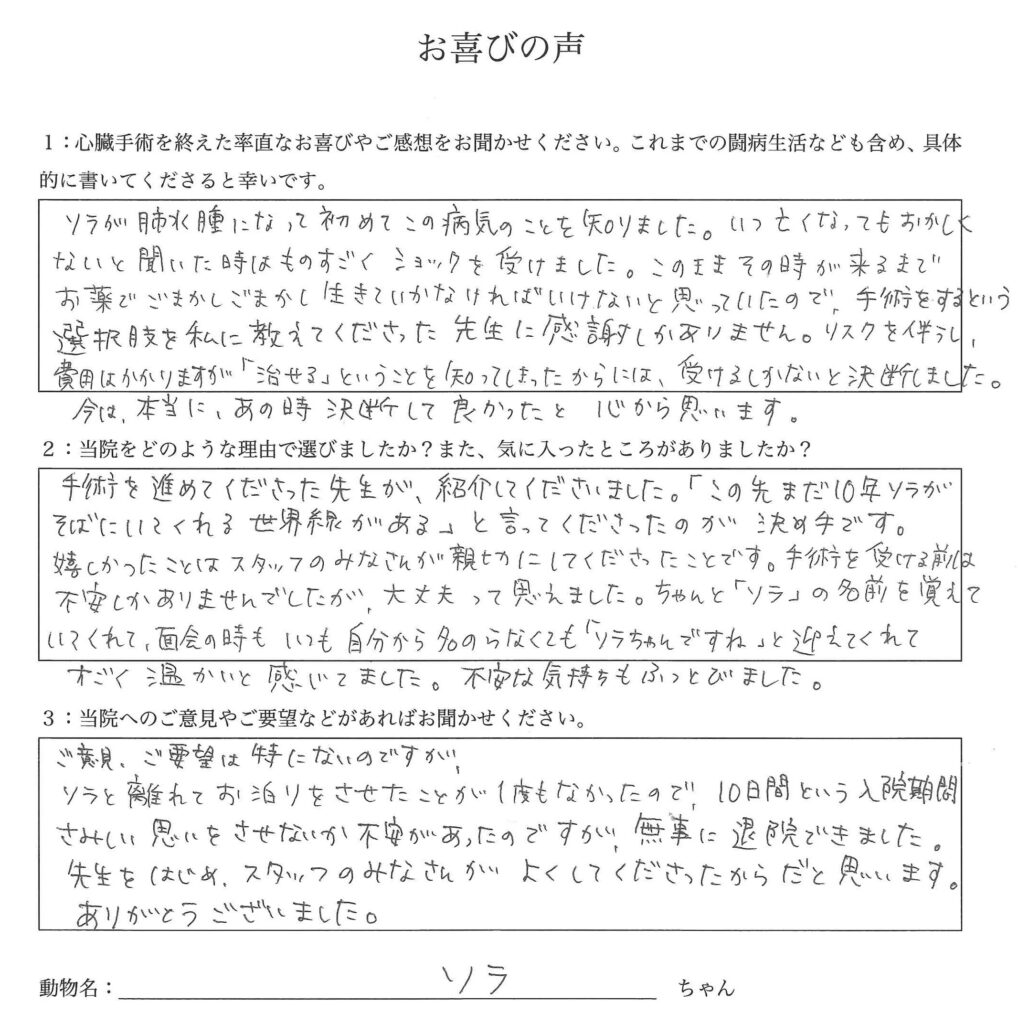 お喜びの声
1:心臓手術を終えた率直なお喜びやご感想をお聞かせください。これまでの闘病生活なども含め、具体
的に書いてくださると幸いです。
ソラが肺水腫になって初めてこの病気のことを知りました。いつ亡くなってもおかしく
ないと聞いた時はものすごくショックを受けました。このままその時が来るまで
お薬でごまかしごまかし生きていかなければいけないと思っていたので、手術をするという
選択肢を私に教えてくださった先生に感謝しかありません。リスクを伴うし、
費用はかかりますが「治せる」ということを知ってしまったからには、受けるしかないと決断しました。
今は、本当に、あの時決断して良かったと心から思います。
2:当院をどのような理由で選びましたか?また、気に入ったところがありましたか?
手術を進めてくださった先生が、紹介してくださいました。「この先まだ10年ソラが
そばにいてくれる世界線がある」と言ってくださったのが決め手です。
嬉しかったことはスタッフのみなさんが親切にしてくださったことです。手術を受ける前は
不安しかありませんでしたが、大丈夫って思えました。ちゃんと「ソラ」の名前を覚えて
いてくれて、面会の時もいつも自分から名のらなくても「ソラちゃんですね」と迎えてくれて
すごく温かいと感じてました。不安な気持ちもふっとびました。
3:当院へのご意見やご要望などがあればお聞かせください。
ご意見、ご要望は特にないのですが、
ソラと離れてお泊りをさせたことが1度もなかったので、10日間という入院期間
さみしい思いをさせないか不安があったのですが、無事に退院できました。
先生をはじめ、スタッフのみなさんがよくしてくださったからだと思います。
ありがとうございました。
動物名: ソラ ちゃん